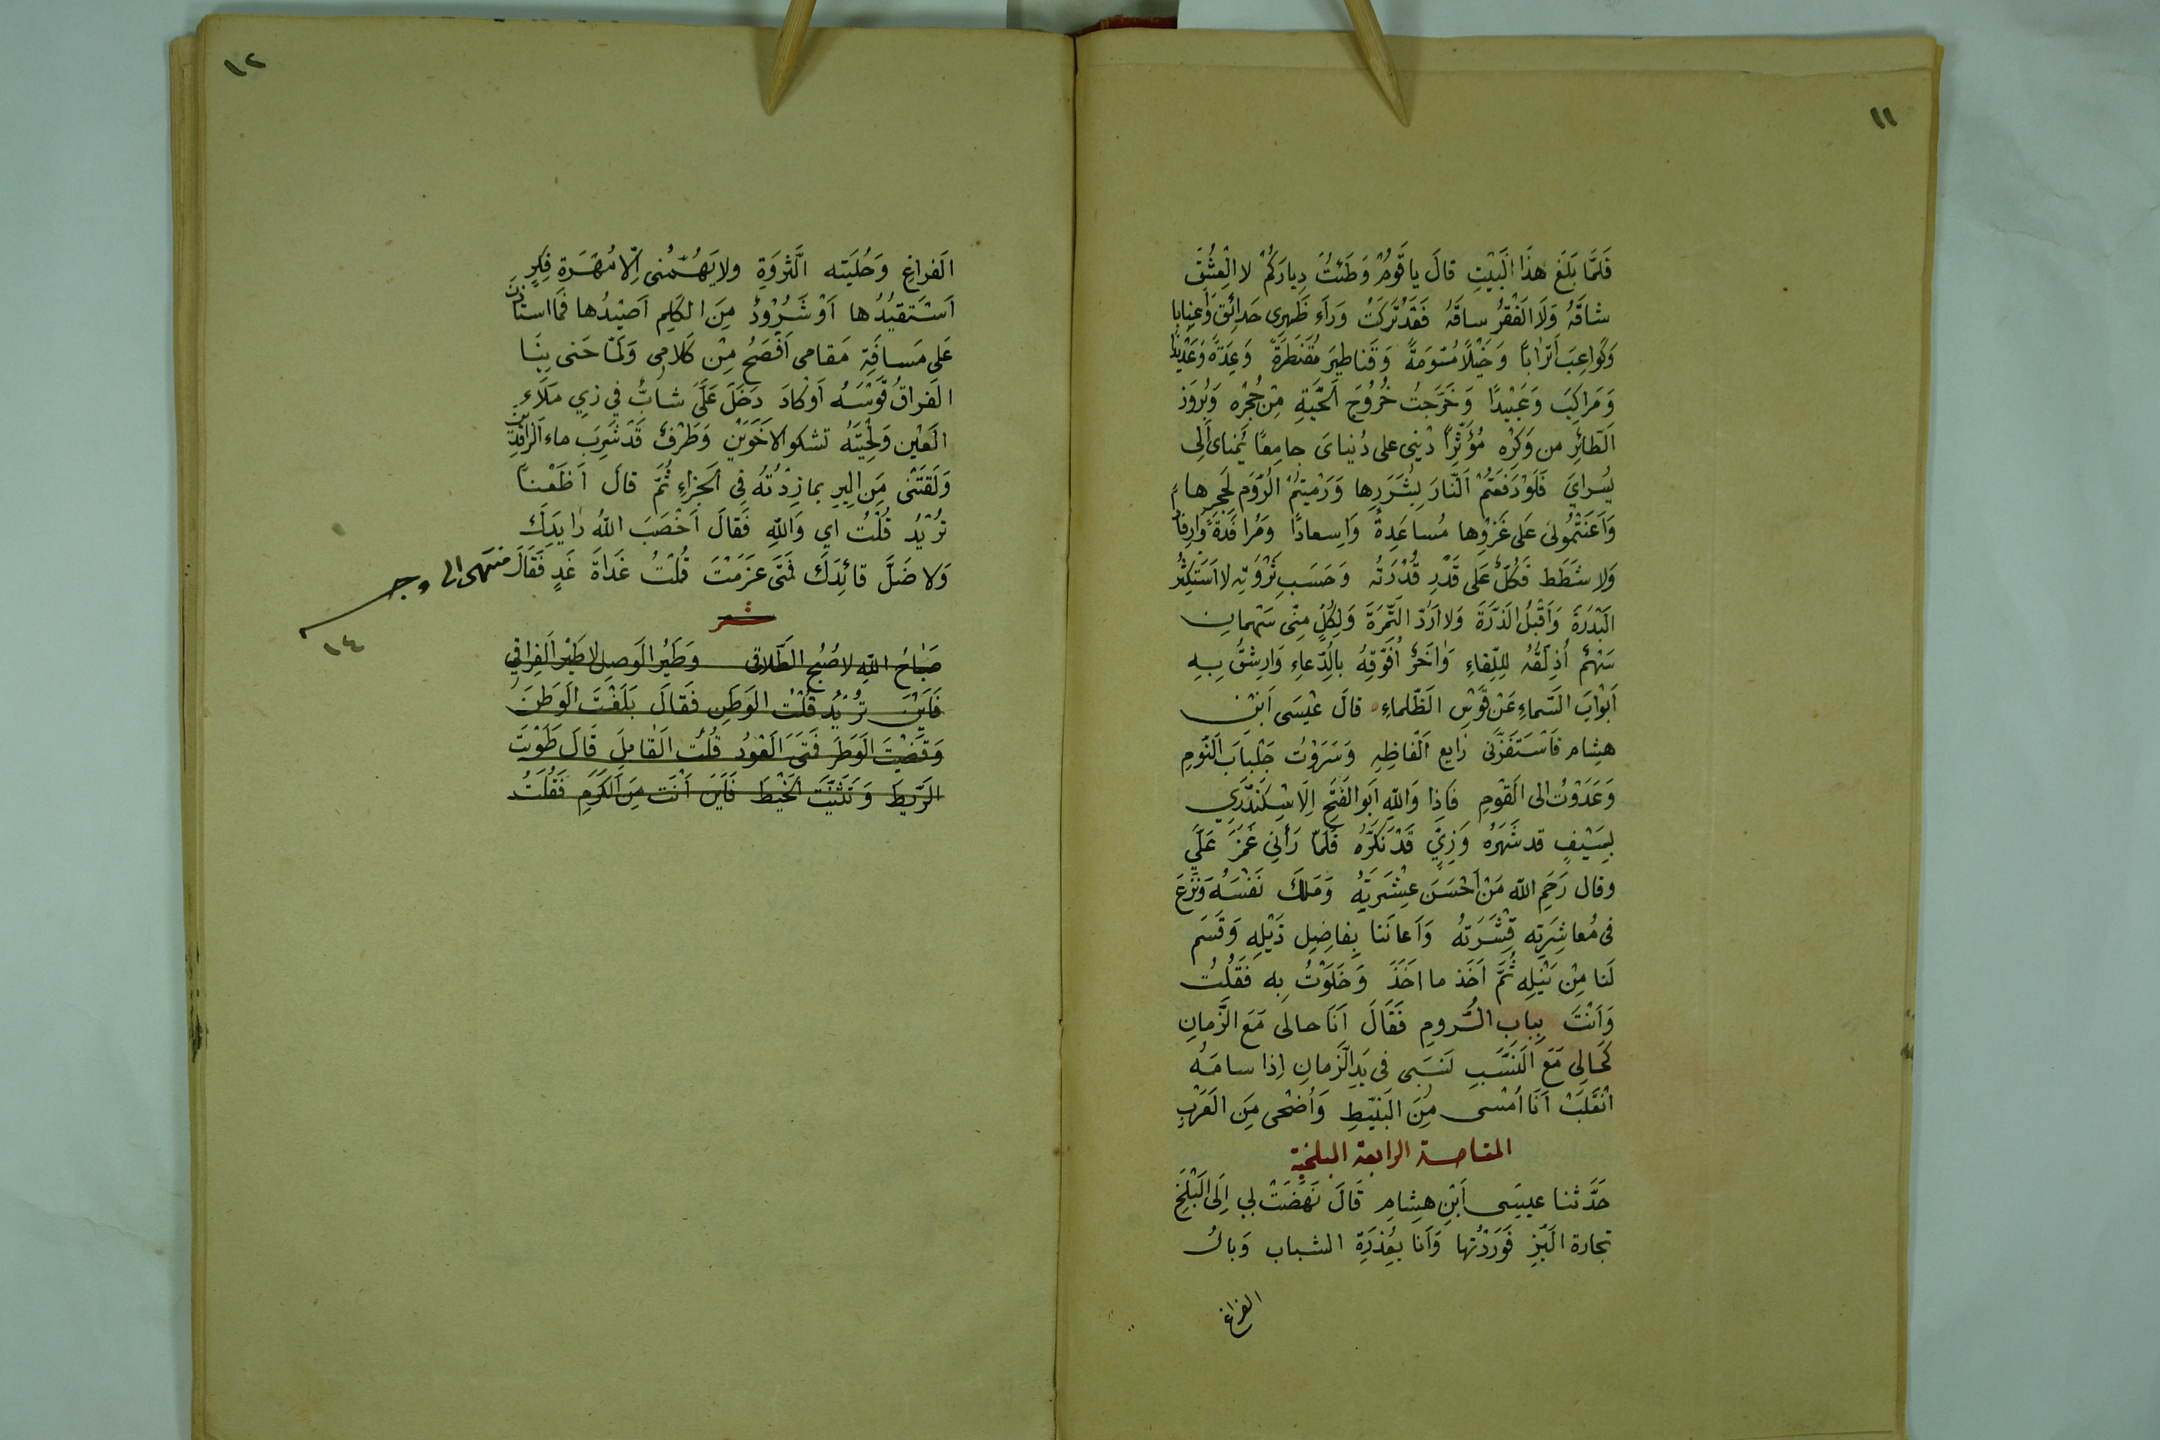 ١١
فَلَمَّا بَلَغَ هٰذَا الْبَيْتِ قالَ يا قَوْمُ وَطَئْتُ دِيارَكُمْ لا الْعِشْقَ
شاقَهُ وَلَا الْفَقْرُ ساقَهُ فَقَدْ تَرَكَتُ وَرَآءَ ظَهْرِى حَدائِقَ وَأَعْنابا
وَكَواعِبَ أَتْرٰاباً وَخَيْلًا مُسَوَمَةً وَقَناطِيرَ مُقَنْطَرَةً وَعِدَةً وَعَدْيدًا
وَمَراكِبَ وَعَبْيدًا وَخَرَجتُ خُرُوجَ الْحَيَّةِ مِنْ جُحْرِه وَبُرَوزَ
الْطائِرِ من وَكَرْه مُؤْثِرًا دْينِى على دُنيايَ جامِعًا يُمْناىَ اِلى
يُسْرايَ فَلَوْ دَفَعَتُمْ الْنّارَ بِشَرَرِها وَرَمَيْتِمُ الْرُوَم بِحَجَرِها
وَاَعَنْتُمُونى عَلى غَزوِها مُساعَدِةً وَاِسعادًا وَمُرافَدَةً وَاِرفادًا
وَلا شَطَط فَكُلٌ عَلى قَدْرِ قُدْرَتُه وَحَسَبِ ثَرْوَتِهِ لا اَسْتَكْثِرُ
الْبَدْرَةَ وَاَقْبَلُ الْذَرَّةَ وَلا اَرُدّ الْتَمَرَةَ وَلِكُلٍ مِنّى سَهْمانِ
سَهْمٌ اُذَلِّقُهُ لِلِّقاءِ وَآخَرٌ اُفَوِّقهُ بالْدُّعاءِ وَارِشْقُ بِهِ
اَبْوابَ السَّماءِ عَنْ قَوْسِ الْظَلماءِ قالَ عيْسَى ابْنِ
هشام فَاسْتَفَزَّنى رَايع اَلْفاظِهِ وَسَرَوْتُ جَلْبابَ النَّومِ
وَعَدَوْتُ الى الْقَوْمِ فَاِذا وَاللّهِ اَبوالفَتْحِ الاِسْكَنْدَري
بِسَيْفٍ قد شَهَرَه وَزِيٍّ قَدْ نَكَرَّه فَلَمّا رَأني غَمَزَ عَلَيَّ
وقال رَحَمِ اللّه مَنْ اَحْسَنَ عِشْرَتَهُ وَمَلَكَ نَفْسَهُ وَنَزَعَ
فى مُعاشِرَتِه قِشْرَتَهُ وَاَعانَنا بِفاضِلِ ذَيْلِهِ وَقَسَم
لَنا مِنْ نَيْلِه ثُمَّ اَخَذ ما اخَذَ وَخَلَوْتُ بِه فَقُلْتُ
وَاَنْتَ بِبابِ الْرُّومِ فَقَالَ اَنَا حالى مَعَ الزَّمانِ
كَحالِى مَعَ الْنَسَبِ نَسَبى فى يَدِ الزَمانِ اِذا سامَهُ
انْقَلَبْ اَنَا اُمْسى مِنَ النَبيْطِ وَاُضْحى مِنَ الْعَرَبِ
المقامـة الرابعة البلخية
حَدَّثنا عيسَى اَبْنِ هِشامِ قَالَ نَهَضَتْ بي اِلَى الْبَلَخِ
تجارة الْبَزِ فَوَرَدْتها وَاَنا بِعُذْرَةِ الشباب وَبالُ
الفراغ
١٢
الفراغِ وَحُليَتِه الْثَرْوَةِ ولا يَهُمُّنى اِلّا مُهْرَةِ فِكِرٍ
اَسْتَقيْدُها اَوْ شَرُوْدٌ مِنَ الكَلِم اَصْيدُها فَما استأذن
عَلى مَسافَةِ مَقامى اَفْصَحُ مِنْ كَلامى وَلَمّا حَنى بِنَا
الْفراقُ قَوْسَهُ اَوْ كادَ دَخَلَ عَلَىَ شابٌّ في زي مَلَاءِ
العَيْن وَلِحْيَتَهُ تشكو الاخَوَيْن وَطَرْفٌ قَدْ شَرِبَ ماء الرّافِدَين
وَلَقَيَنْى مَنِ البِر بما زِدْتُهُ فِى الْجَزاءِ ثُمَّ قالَ اَظَعْنًا
تُرْيْدُ قُلْتُ اي وَاللّهِ فَقالَ اَخْصَبَ اللّهُ رَايَدِكَ
وَلا ضَلَّ قائِدِكَ فَمَتى عَزَمْتَ قُلْتُ غَداةَ غَدٍ فَقَالَ منتهى الى وجه
١٤
شعر
صَباحُ اللّهِ لا صُبْحُ الطَّلاقِ وَطَيْرُ الْوَصِلِ لا طَيْرَ الْفِراقِ
فَاَيْنَ تُرْيْدُ قُلْتُ الوَطَنِ فَقالَ بَلَغْتَ الْوَطَنَ
وَقَضْيتَ الْوَطَرَ فَمَتَى الْعَوْدُ قُلْتُ الْقابِلَ قالَ طَوْيتَ
الرَيْطَ وَثَنَّيْتَ الْخَيْطَ فَاَيْنَ اَنْتَ مِنَ الْكَرَمِ فَقُلَتُ